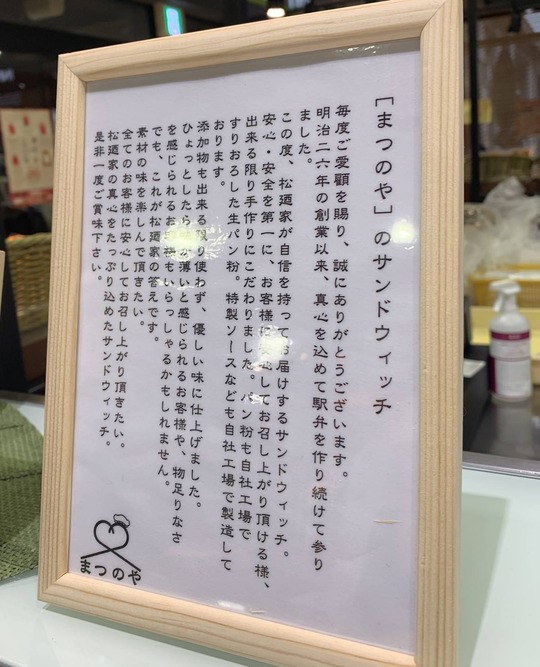 ［まつのや］のサンドウィッチ
毎度ご愛顧を賜り、誠にありがとうございます。
明治二六年の創業以来、真心を込めて駅弁を作り続けて参り
ました。
この度、松廼家が自信を持ってお届けするサンドウィッチ。
安心・安全を第一に、お客様に安心してお召し上がり頂ける様、
出来る限り手作りにこだわりました。パン粉も自社工場で
すりおろした生パン粉。特製ソースなども自社工場で製造して
おります。
添加物も出来る限り使わず、優しい味に仕上げました。
ひょっとしたら、薄いと感じられるお客様や、物足りなさ
を感じられるお客様もいらっしゃるかもしれません。
でも、これが松廼家の答えです。
素材の味を楽しんで頂きたい。
全てのお客様に安心してお召し上がり頂きたい。
松廼家の真心をたっぷり込めたサンドウィッチ。
是非一度ご賞味下さい。
まつのや